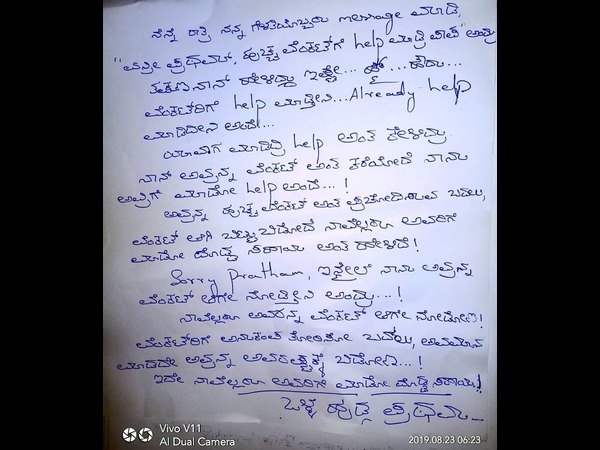 ನೆನ್ನೆ ರಾತ್ರಿ ನನ್ನ ಗೆಳತಿಯೊಬ್ಬರು message ಮಾಡಿ,
"ಏನ್ರೀ ಪ್ರಥಮ್, ಹುಚ್ಚ ವೆಂಕಟ್‌ಗೆ help ಮಾಡ್ರಿ ಪಾಪ" ಅಂದ್ರು
ತಕ್ಷಣ ನಾನ್ ಹೇಳಿದ್ದು ಇಷ್ಟೇ...
ವೆಂಕಟ್‌ರಿಗೆ help ಮಾಡ್ತೀನಿ... Already help
ಮಾಡಿದೀನಿ ಅಂದೆ...
ಯಾವಾಗ ಮಾಡಿದ್ರಿ help ಅಂತ ಕೇಳಿದ್ರು
ನಾನ್ ಅವ್ರನ್ನ ವೆಂಕಟ್ ಅಂತ ಕರೆಯೋದೆ ನಾನು
ಅವ್ರಿಗೆ ಮಾಡೋ help ಅಂದೆ...!
ಅವ್ರನ್ನ ಹುಚ್ಚ ವೆಂಕಟ್ ಅಂತ ಪ್ರಚೋದಿಸುವ ಬದಲು,
ವೆಂಕಟ್ ಆಗಿ ಬಿಟ್ಟುಬಿಡೋದೆ ನಾವೆಲ್ಲರೂ ಅವರಿಗೆ
ಮಾಡೋ ದೊಡ್ಡ ಸಹಾಯ ಅಂತ ಹೇಳಿದೆ!
Sorry Pratham, ಇನ್ಮೇಲೆ ನಾನು ಅವ್ರನ್ನ
ವೆಂಕಟ್ ಆಗೇ ನೋಡ್ತೀನಿ ಅಂದ್ರು...!
ನಾವೆಲ್ಲರೂ ಅವರನ್ನ ವೆಂಕಟ್ ಆಗೇ ನೋಡೋಣ!
ವೆಂಕಟ್‌ರಿಗೆ ಅನುಕಂಪ ತೋರಿಸೋ ಬದಲು, ಅವಮಾನ
ಮಾಡದೇ ಅವ್ರನ್ನ ಅವರಷ್ಟಕ್ಕೆ ಬಿಡೋಣ...!
ಇದೇ ನಾವೆಲ್ಲರೂ ಅವರಿಗೆ ಮಾಡೋ ದೊಡ್ಡ ಸಹಾಯ!
ಒಳ್ಳೆ ಹುಡ್ಗ ಪ್ರಥಮ್...
Vivo V11
AI Dual Camera
2019.08.23 06:23